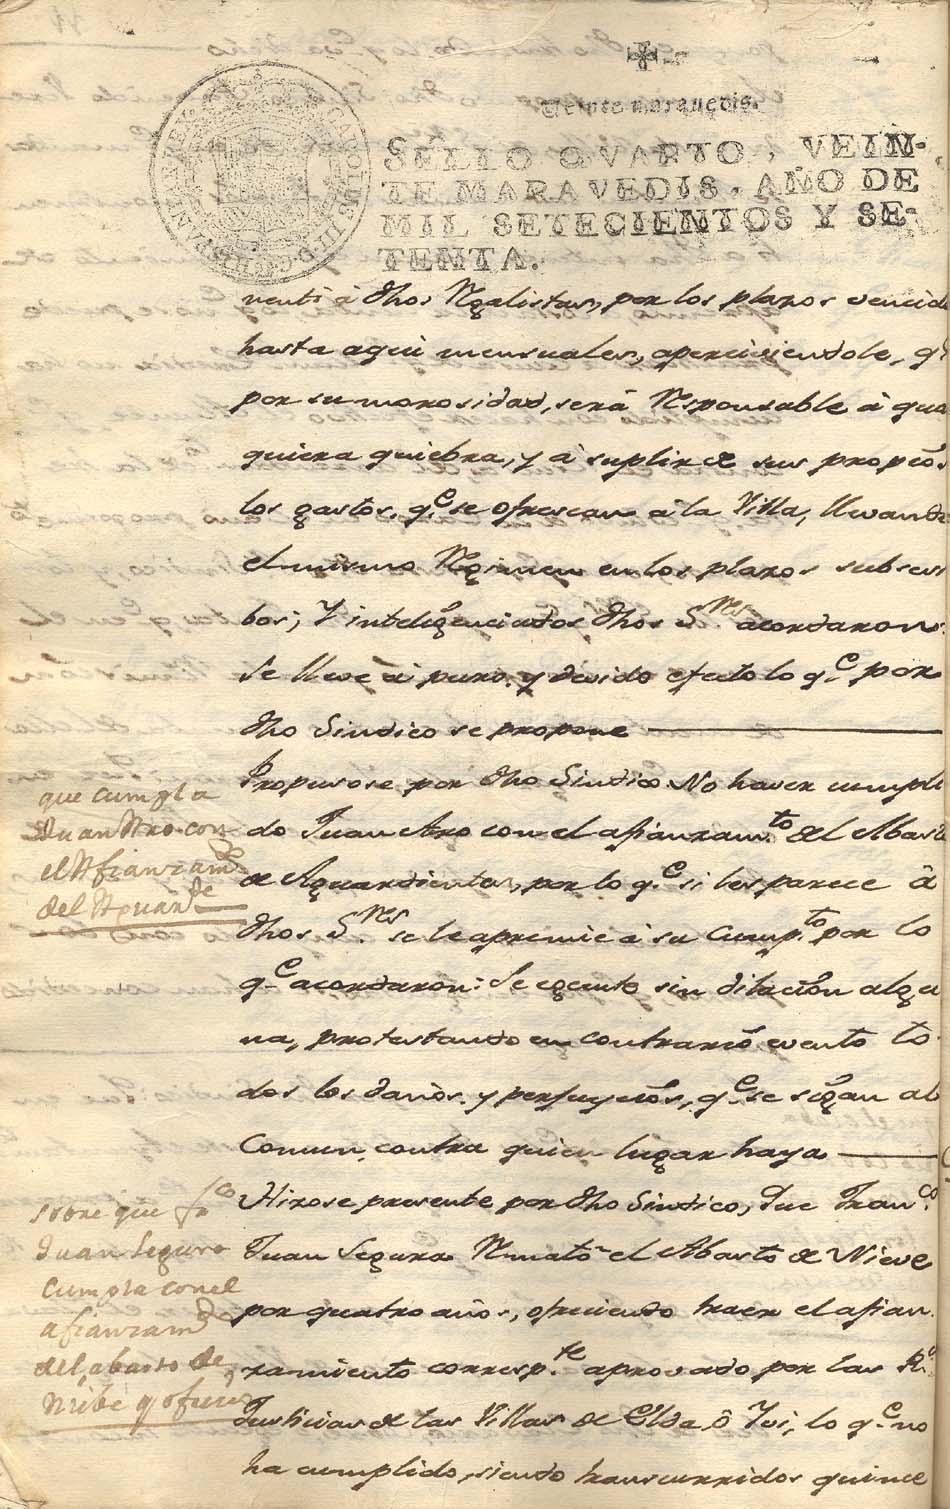 Veinte maravedis.
SELLO QVARTO, VEIN-
TE MARAVEDIS, AÑO DE
MIL SETECIENTOS Y SE-
TENTA.
CAROLUS III D G HISPANIAR REX
venti â dhos Rg̃alistas, por los plazos vencid
hasta aqui mensuales, aperciviendole, q.ᵉ
por su morosidad, será Responsable â qua
quiera quiebra, y â suplir de sus propẽos
los gastos, q.ᵉ se ofrescan â la Villa, llevando
el mismo Regimen en los plazos subsesi
bos; Y inteligenciados dhos S.ʳᵉˢ acordaron:
Se lleve â puro, y devido efecto lo q.ᵉ por
dho Sindico se propone
que cumpla
Juan Aro con
el Afianzam.ᵗᵒ
del Aguar.ᵗᵉ
Propusose por dho Sindico No haver cumpli
do Juan Aro con el afianzam.ᵗᵒ del Abasto
de Aguardientes, por lo q.ᵉ si les parece â
dhos S.ʳᵉˢ se le apremie â su cump.ᵗᵒ por lo
q.ᵉ acordaron: Se egecute sin dilacion algu
na, protestando en contrario evento to
dos los daños, y perjuycios, q.ᵉ se sigan al
Comun, contra quien lugar haya
sobre que Fr.ᶜᵒ
Juan Seguro
cumpla con el
afianzam.ᵗᵒ
del abasto de
Niebe q ofreció
Hizose presente por dho Sindico, Que Fran.ᶜᵒ
Juan Segura Remató el Abasto de Nieve
por quatro años, ofreciendo traer el afian
zamiento corresp.ᵗᵉ aprovado por las R.ˢ
Justicias de las Villas de Elda, ô Ivi, lo q.ᵉ no
ha cumplido, siendo transcurridos quince